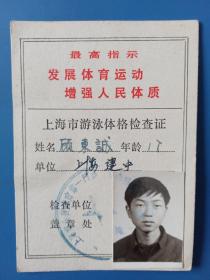 最高指示
发展体育运动
增强人民体质
上海市游泳体格检查证
姓名 顾東誠 年龄 17
单位 上海建中
检查单位
盖章处